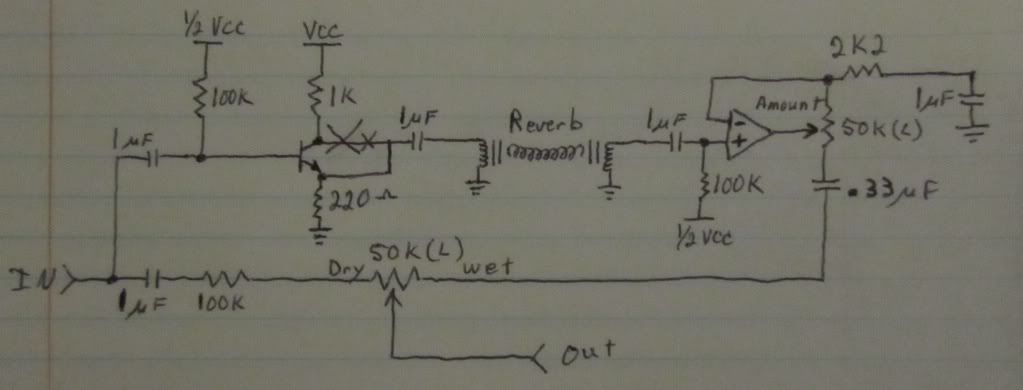 1/2 Vcc
Vcc
100K
1K
1µF
1µF
220Ω
Reverb
1µF
100K
1/2 Vcc
Amount
2K2
1µF
50K(L)
.33µF
IN
1µF
100K
Dry
50K(L)
wet
Out
- 
+